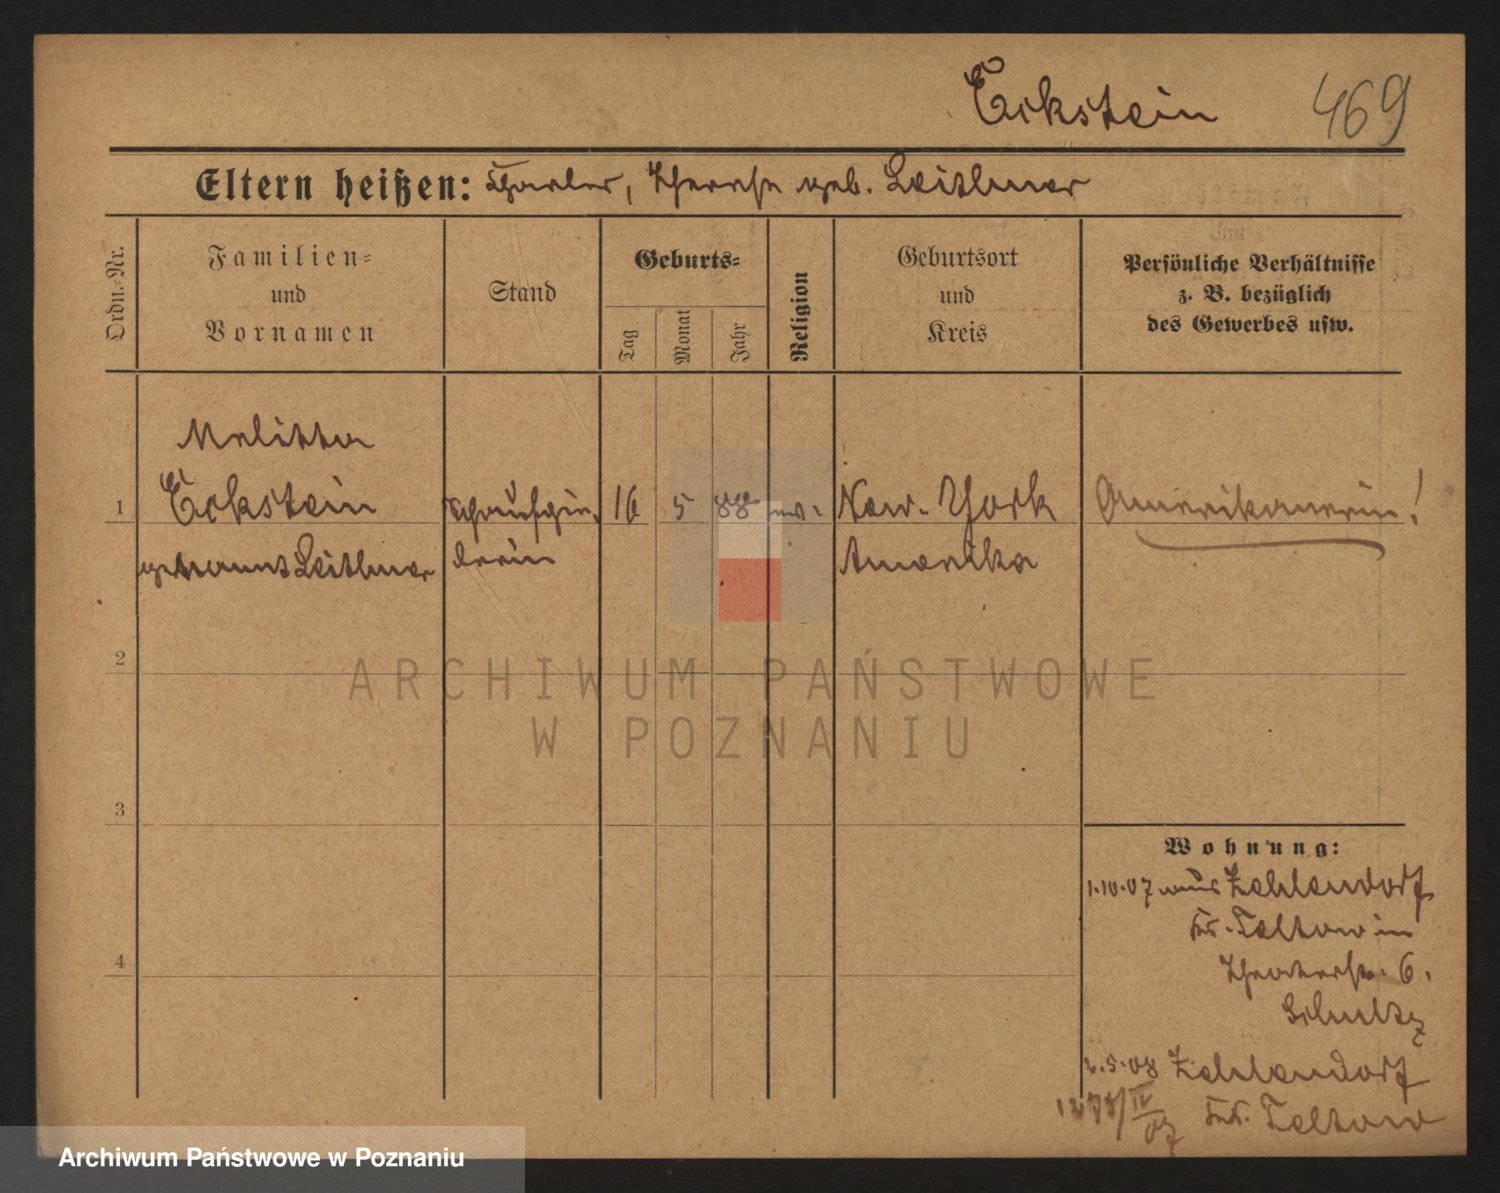 Eckstein 469
Eltern heißen: Therese geb. Leitlmer
Ordn.-Nr.
Familien-
und
Vornamen
Stand
Geburts-
Tag
Monat
Jahr
Religion
Geburtsort
und
Kreis
Persönliche Verhältnisse
z. B. bezüglich
des Gewerbes usw.
Melitta
1 Eckstein Schauspie- 16 5 88 ev. New-York Amerikanerin!
genannt Leitlmer lerin Amerika
2
3
4
Wohnung:
1.10.07 aus Zehlendorf
Kr. Teltow in
Theaterstr. 6.
Schultz
2.5.08 Zehlendorf
Kr. Teltow
IV
07
ARCHIWUM PAŃSTWOWE
W POZNANIU
Archiwum Państwowe w Poznaniu